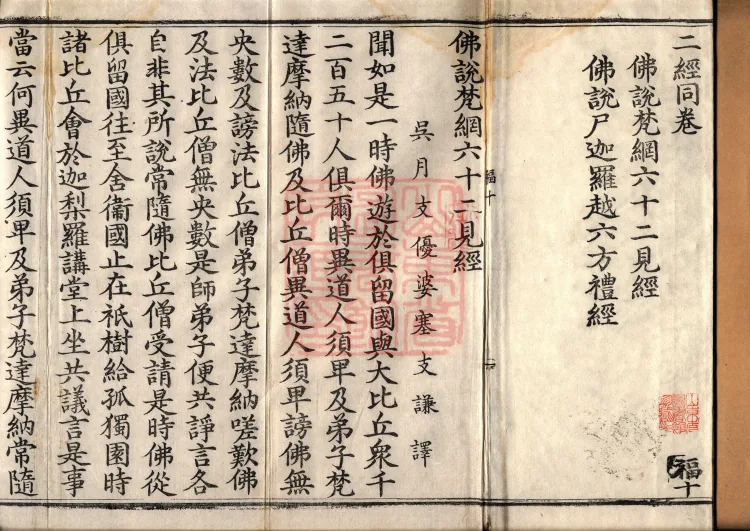 二經同卷
佛說梵網六十二見經
佛說尸迦羅越六方禮經
福十
福十
二
佛說梵網六十二見經
吳月支優婆塞支謙譯
聞如是一時佛遊於俱留國與大比丘衆千
二百五十人俱爾時異道人須卑及弟子梵
達摩納隨佛及比丘僧異道人須卑謗佛無
央數及謗法比丘僧弟子梵達摩納嗟歎佛
及法比丘僧無央數是師弟子便共諍言各
自非其所說常隨佛比丘僧受請是時佛從
俱留國往至舍衞國止在祇樹給孤獨園時
諸比丘會於迦梨羅講堂上坐共議言是事
當云何異道人須卑及弟子梵達摩納常隨